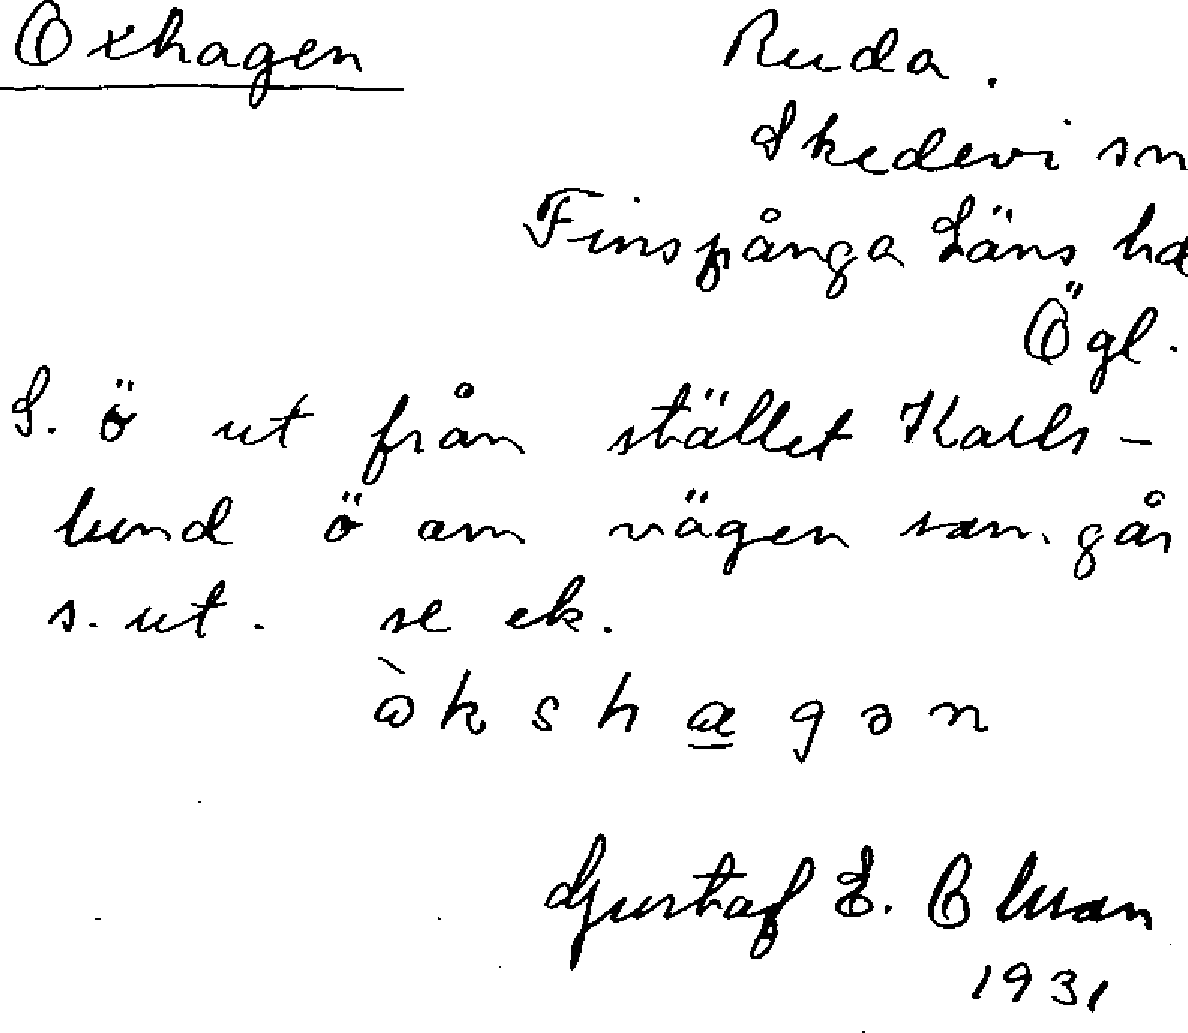 Oxhagen
Ruda.
Skedevi sn
Finspånga Läns hd
Ögl.
S. ö ut från stället Karls-
lund ö om vägen som går
s. ut. se ek.
òkshagən
Gustaf E. Olman
1931